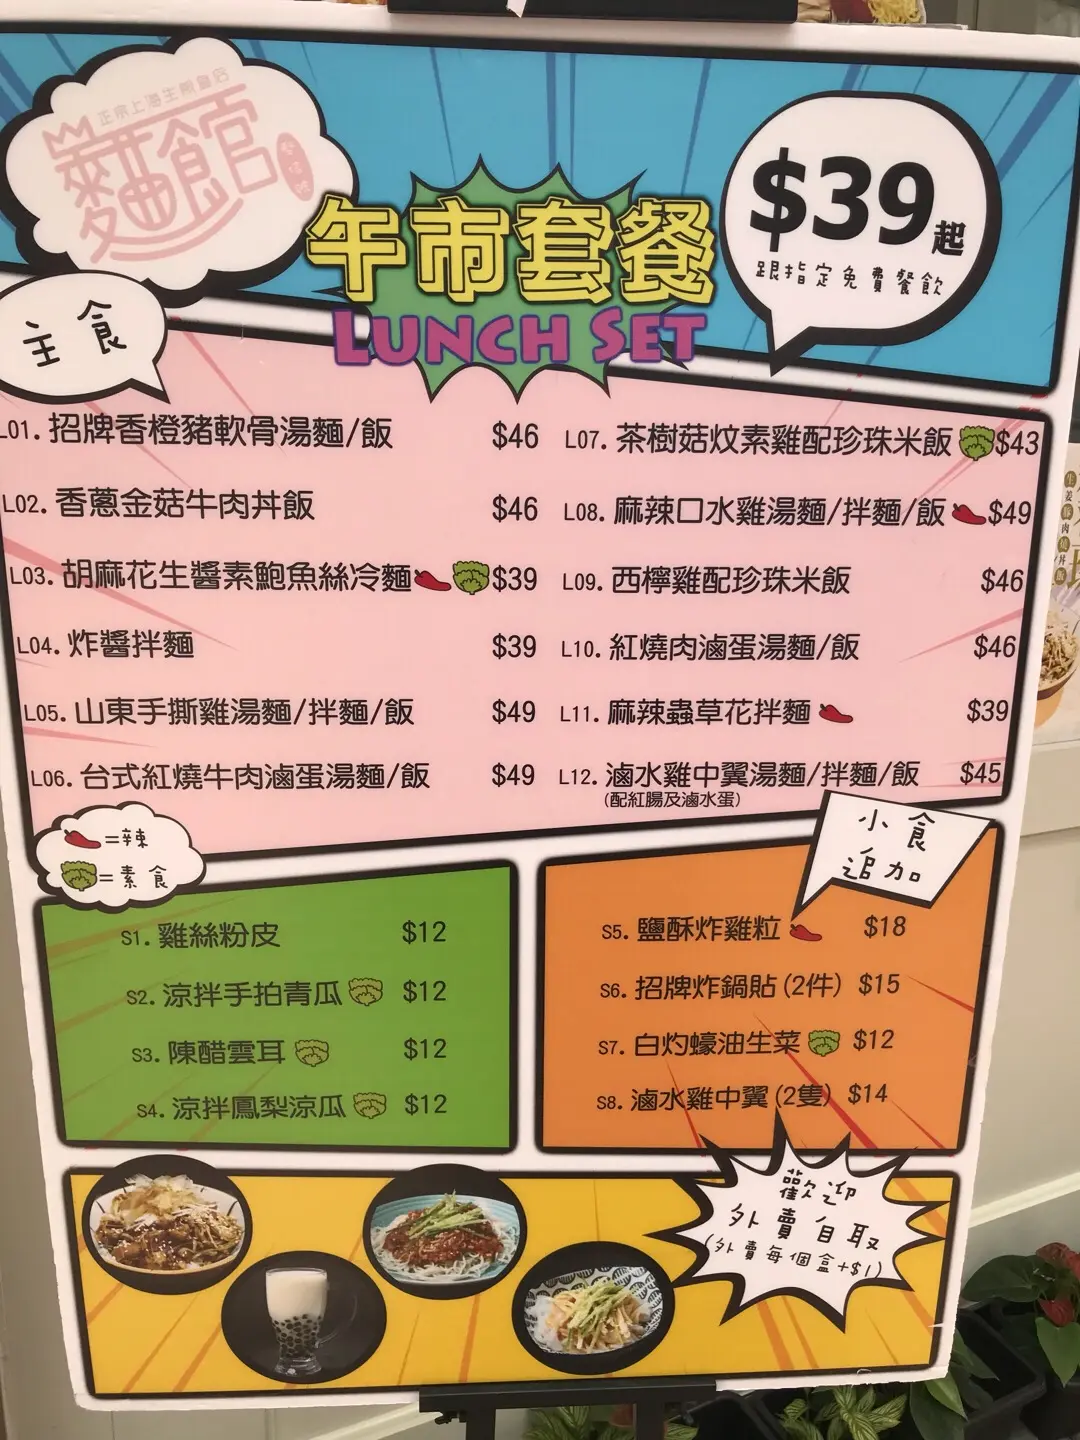 正宗上海生煎皇店
麵館
午市套餐
LUNCH SET
$39起
跟指定免費餐飲
主食
L01. 招牌香橙豬軟骨湯麵/飯 $46
L02. 香蔥金菇牛肉丼飯 $46
L03. 胡麻花生醬素鮑魚絲冷麵 $39
L04. 炸醬拌麵 $39
L05. 山東手撕雞湯麵/拌麵/飯 $49
L06. 台式紅燒牛肉滷蛋湯麵/飯 $49
L07. 茶樹菇炆素雞配珍珠米飯 $43
L08. 麻辣口水雞湯麵/拌麵/飯 $49
L09. 西檸雞配珍珠米飯 $46
L10. 紅燒肉滷蛋湯麵/飯 $46
L11. 麻辣蟲草花拌麵 $39
L12. 滷水雞中翼湯麵/拌麵/飯 $45
(配紅腸及滷水蛋)
=辣
=素食
S1. 雞絲粉皮 $12
S2. 涼拌手拍青瓜 $12
S3. 陳醋雲耳 $12
S4. 涼拌鳳梨涼瓜 $12
小食
追加
S5. 鹽酥炸雞粒 $18
S6. 招牌炸鍋貼(2件) $15
S7. 白灼蠔油生菜 $12
S8. 滷水雞中翼(2隻) $14
歡迎
外賣自取
(外賣每個盒+$1)